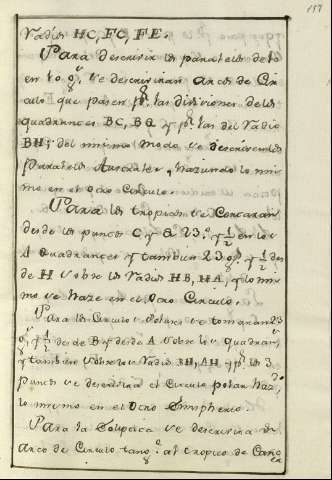 157
radios HC, FC, FE.
Para descrivir los paralelos de 10
en 10 gs. se descriviran arcos de Cir
culo que pasen pr. las divisiones de los
quadrantes BC, BQ y pr. las del radio
BH; del mismo modo se descriven los
Paralelos Australes, haziendo lo mis
mo en el otro Circulo.
Para los tropicos se Contaran
desde los puntos C, y Q 23 gs. y 1/2 en los
4 Quadrantes y tambien 23 gs. y 1/2 des
de H sobre los radios HB, HA, y lo mis
mo se haze en el otro Circulo.
Para los Circulos Polares se tomaran 23
gs. y 1/2 desde B y desde A sobre los quadran,
y tambien sobre los radios BH, AH y pr. los 3
Puntos se descrivira el Circulo polar, haz
lo mismo en el otro Emispherio.
Para la Ecliptica se descrivira un
arco de Circulo tangte. al tropico de Canc
er